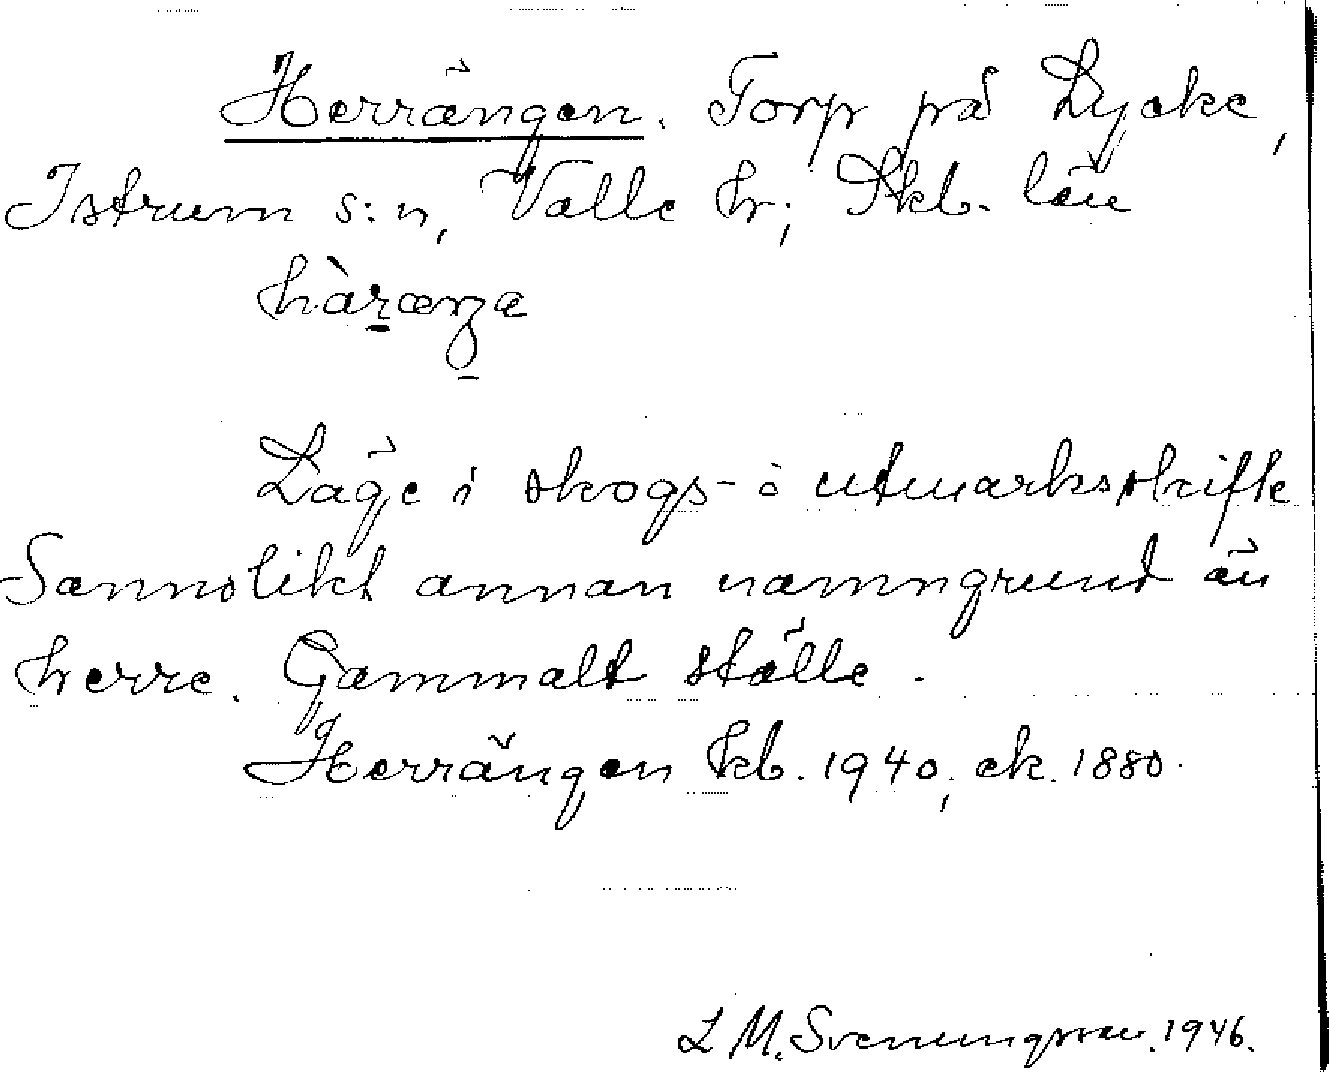 Herrängen. Torp på Lycke,
Istrum s:n, Valle hr; Skb. län
hàræŋa
Läge i skogs- o utmarksskifte
Sannolikt annan namngrund än
herre. Gammalt ställe.
Herrängen kb. 1940, ek. 1880.
L M. Svenungsson. 1946.